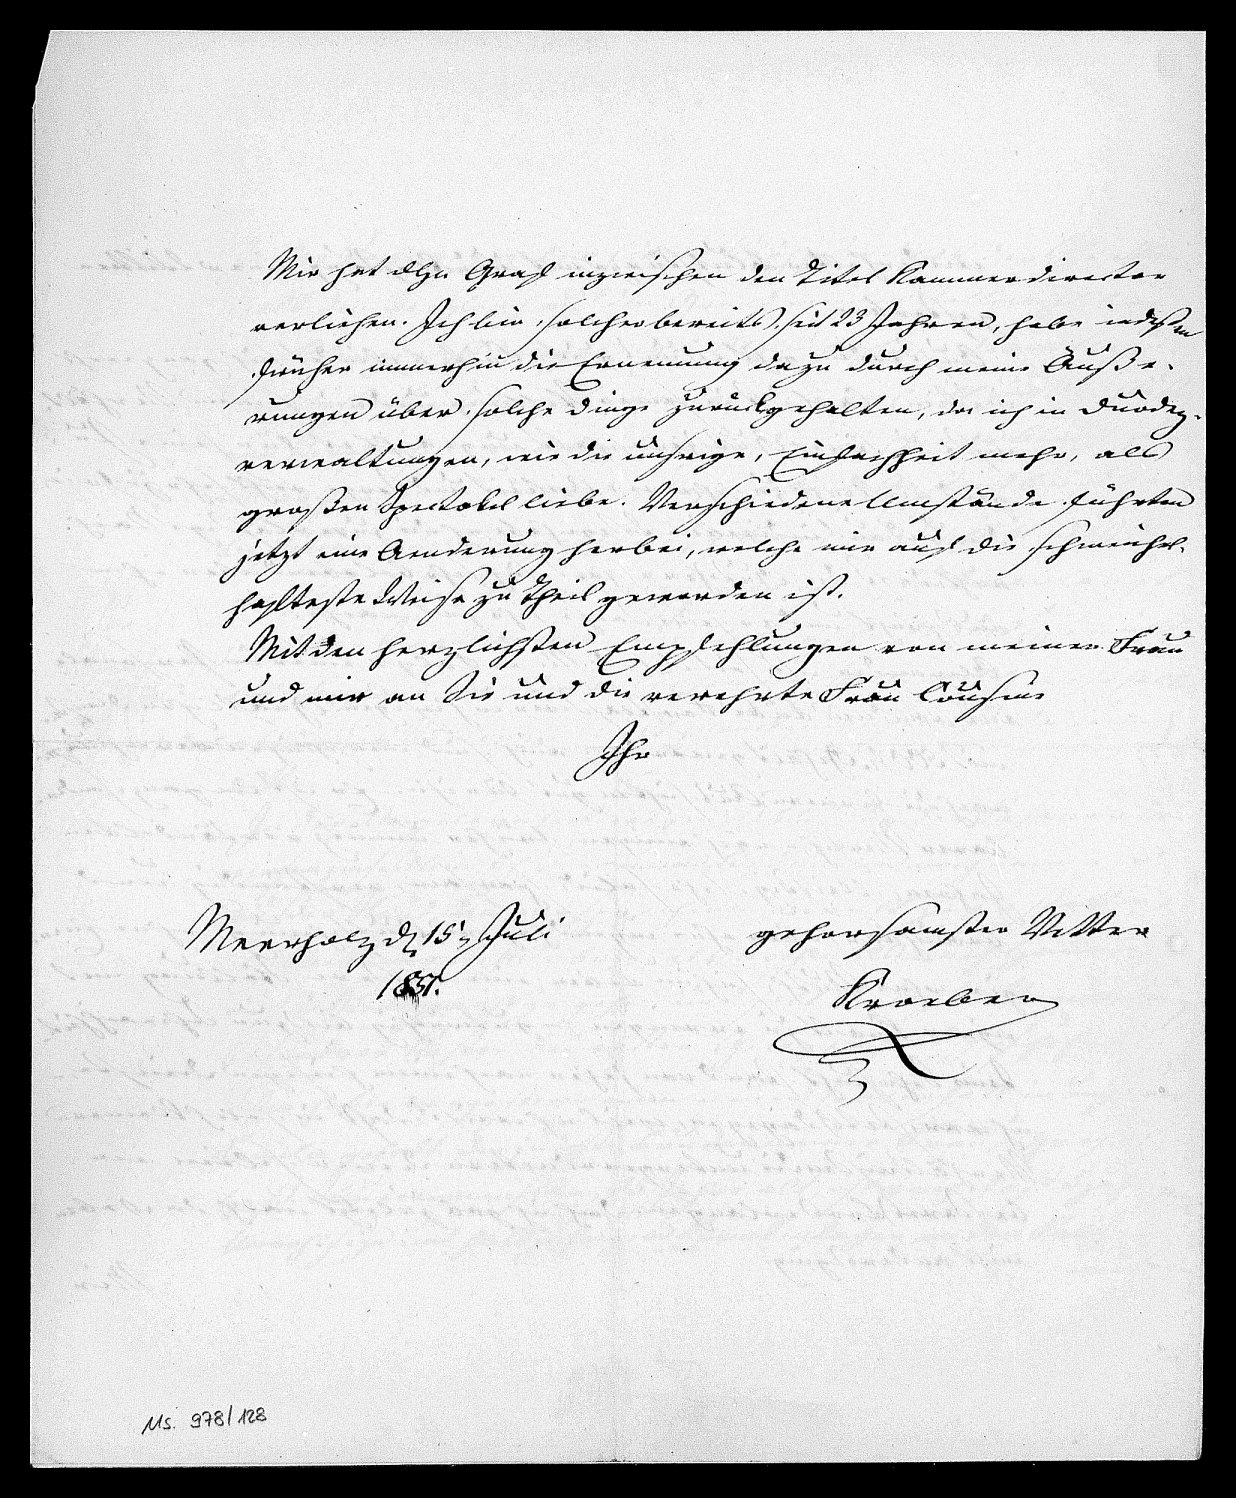 Mir hat der Graf inzwischen den Titel Kammerdirector
verliehen. Ich bin solcher bereits seit 23 Jahren, habe indeßen
früher immerhin die Ernennung dazu durch meine Äuße-
rungen über solche Dinge zurückgehalten, da ich in Duodez-
verwaltungen, wie die unsrige, Einfachheit mehr, als
großen Spectakel liebe. Verschiedene Umstände führten
jetzt eine Aenderung herbei, welche mir auf die schmeichel-
hafteste Weise zu Theil geworden ist.
Mit den herzlichsten Empfehlungen von meiner Frau
und mir an Sie und die verehrte Frau Cousine
Ihr
Meerholz d 15 Juli
gehorsamster Vetter
Kroeber
Ms. 978/128